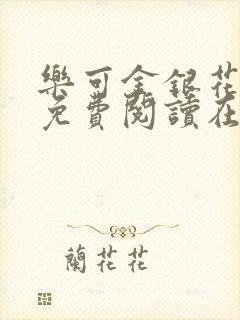 樂可金銀花
免費閱讀在
蘭花花